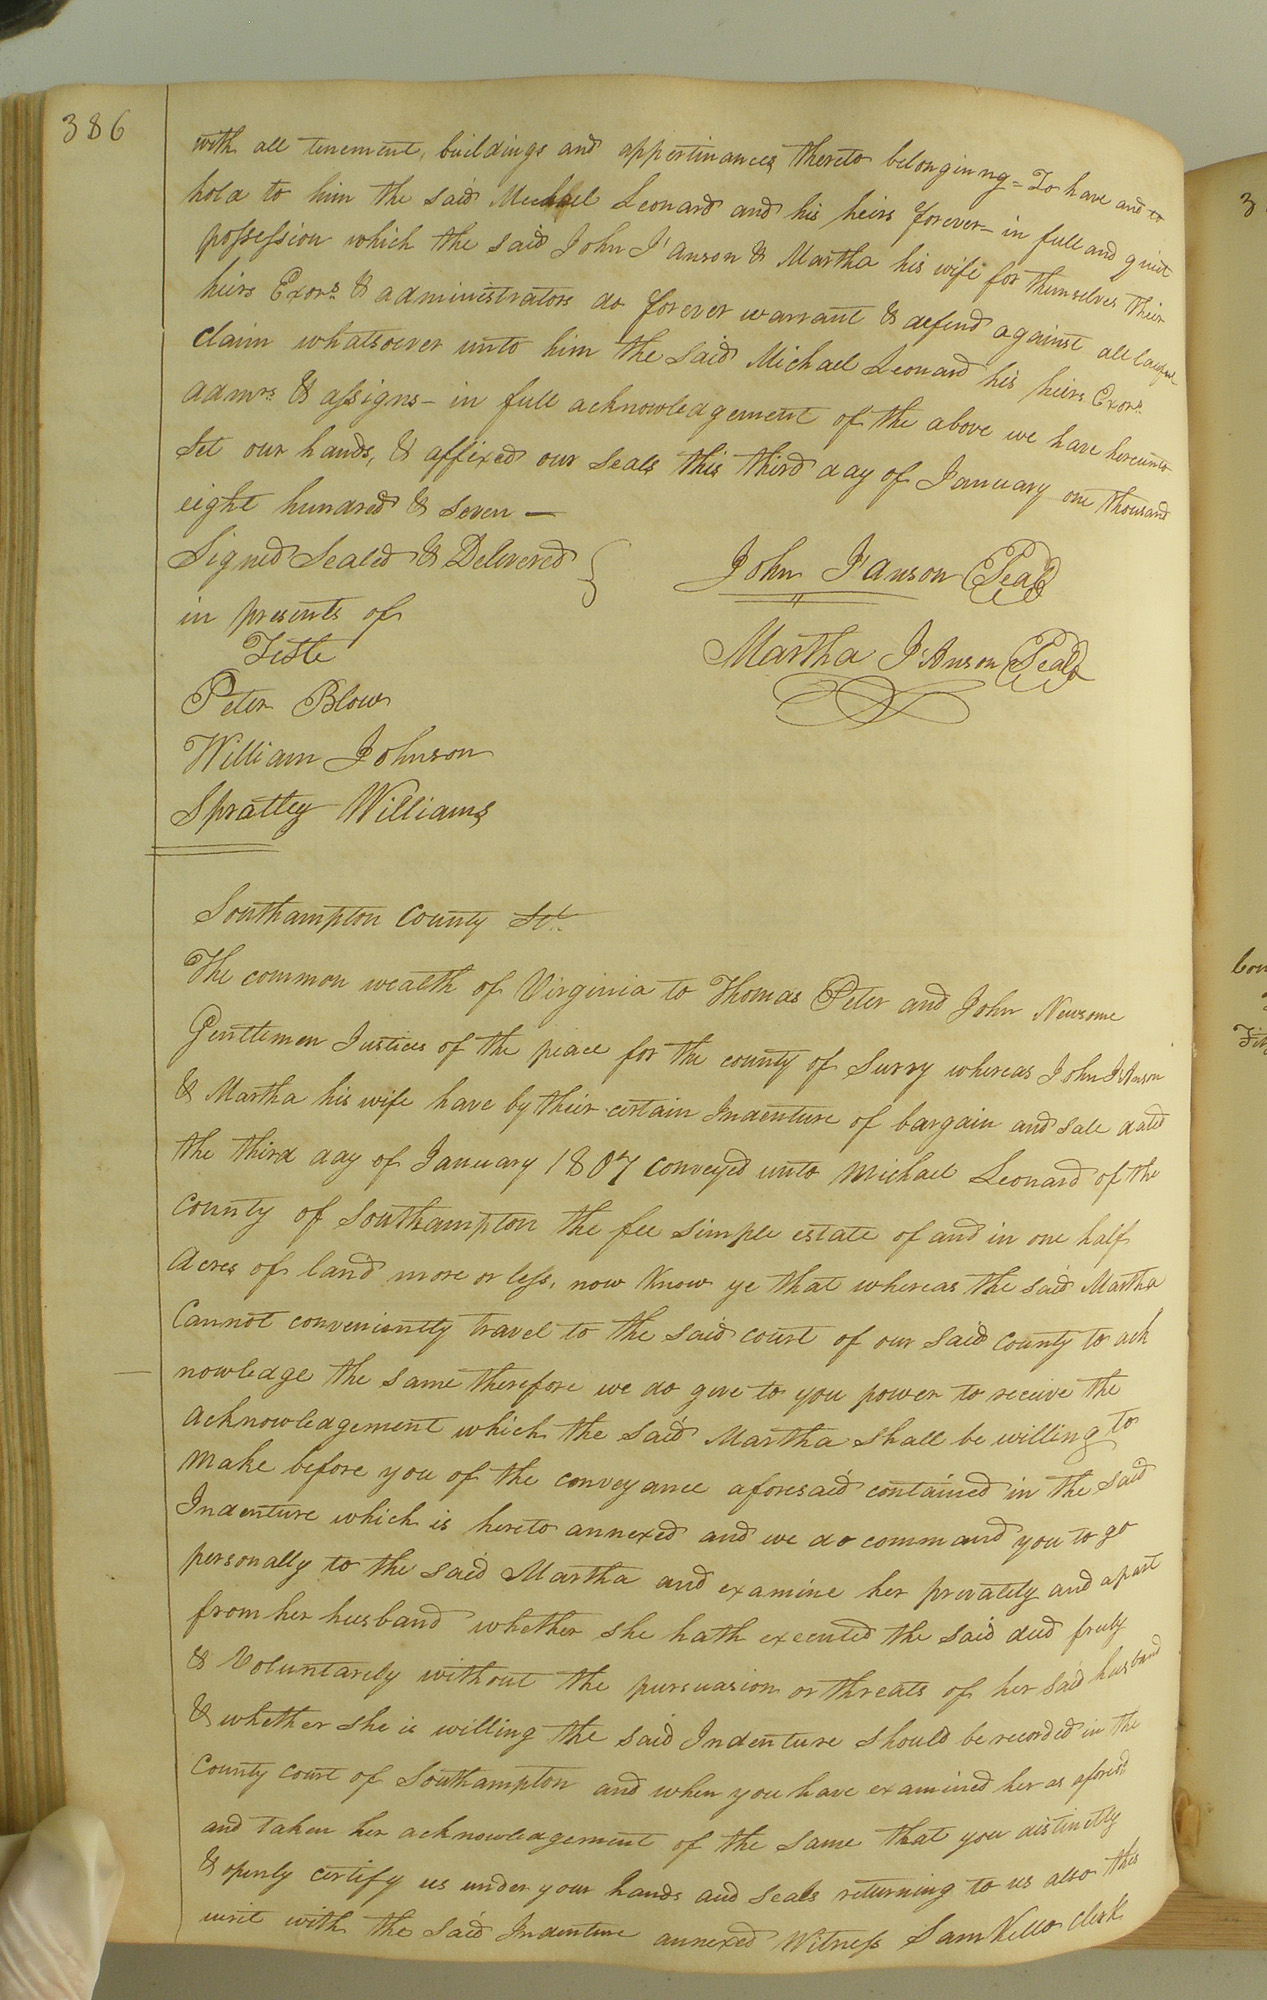 386
with all tenement, buildings and appertinances thereto belonginng = To have and to
hold to him the said Michael Leonard and his heirs forever - in full and quiet
possession which the said John I'anson & Martha his wife for themselves their
heirs Exors. & administrators do forever warrant & defend against all lawful
claim whatsoever unto him the said Michael Leonard his heirs Exors.
admrs. & assigns - in full acknowledgement of the above we have hereunto
set our hands, & affixed our seals this third day of January one thousand
eight hundred & seven —
Signed Sealed & Delivered }
in presents of
Teste
John I'anson Seal
Martha I'Anson Seal
Peter Blow
William Johnson
Spratley Williams
Southampton County Sct.
The common wealth of Virginia to Thomas Peter and John Newsome
Gentlemen Justices of the peace for the county of Surry whereas John I'Anson
& Martha his wife have by their certain Indenture of bargain and sale dated
the third day of January 1807 conveyed unto Michael Leonard of the
county of Southampton the fee simple estate of and in one half
Acres of land more or less, now Know ye that whereas the said Martha
Cannot conveniently travel to the said court of our said county to ack
nowledge the same therefore we do give to you power to receive the
acknowledgement which the said Martha shall be willing to
make before you of the conveyance aforesaid contained in the said
Indenture which is hereto annexed and we do command you to go
personally to the said Martha and examine her privately and apart
from her husband whether she hath executed the said deed freely
& Voluntarely without the pursuasion or threats of her said husband
& whether she is willing the said Indenture should be recorded in the
County court of Southampton and when you have examined her as aforesd.
and taken her acknowledgement of the same that you distinctly
& openly certify us under your hands and seals returning to us also this
writ with the said Indenture annexed Witness Sam Kello Clerk
3